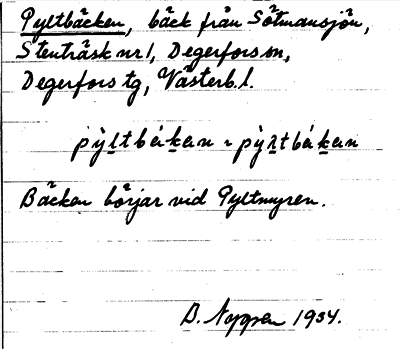 Pyltbäcken, bäck från Sötmansjön,
Stenträsk nr 1, Degerfors sn,
Degerfors tg, Västerb. l.
Bäcken börjar vid Pyltmyren.
1934.